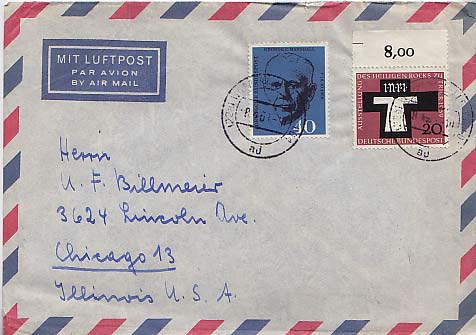 MIT LUFTPOST
PAR AVION
BY AIR MAIL
GEORGE C. MARSHALL
40
8,00
AUSSTELLUNG
DES HEILIGEN ROCKES ZU
TRIER 1959
20
DEUTSCHE BUNDESPOST
ad
ad
Herrn
U. F. Billmeier
3624 Lincoln Ave.
Chicago 13
Illinois U. S. A.